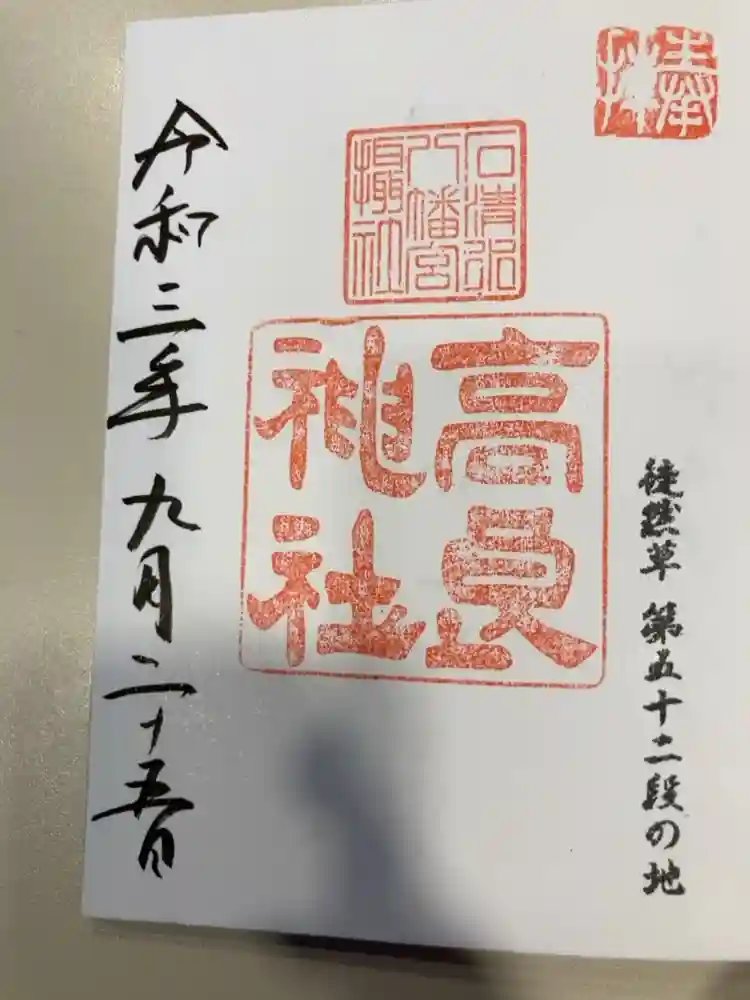 奉拝
徒然草 第五十二段の地
石清水
八幡宮
摂社
高良
神社
令和三年九月二十五日